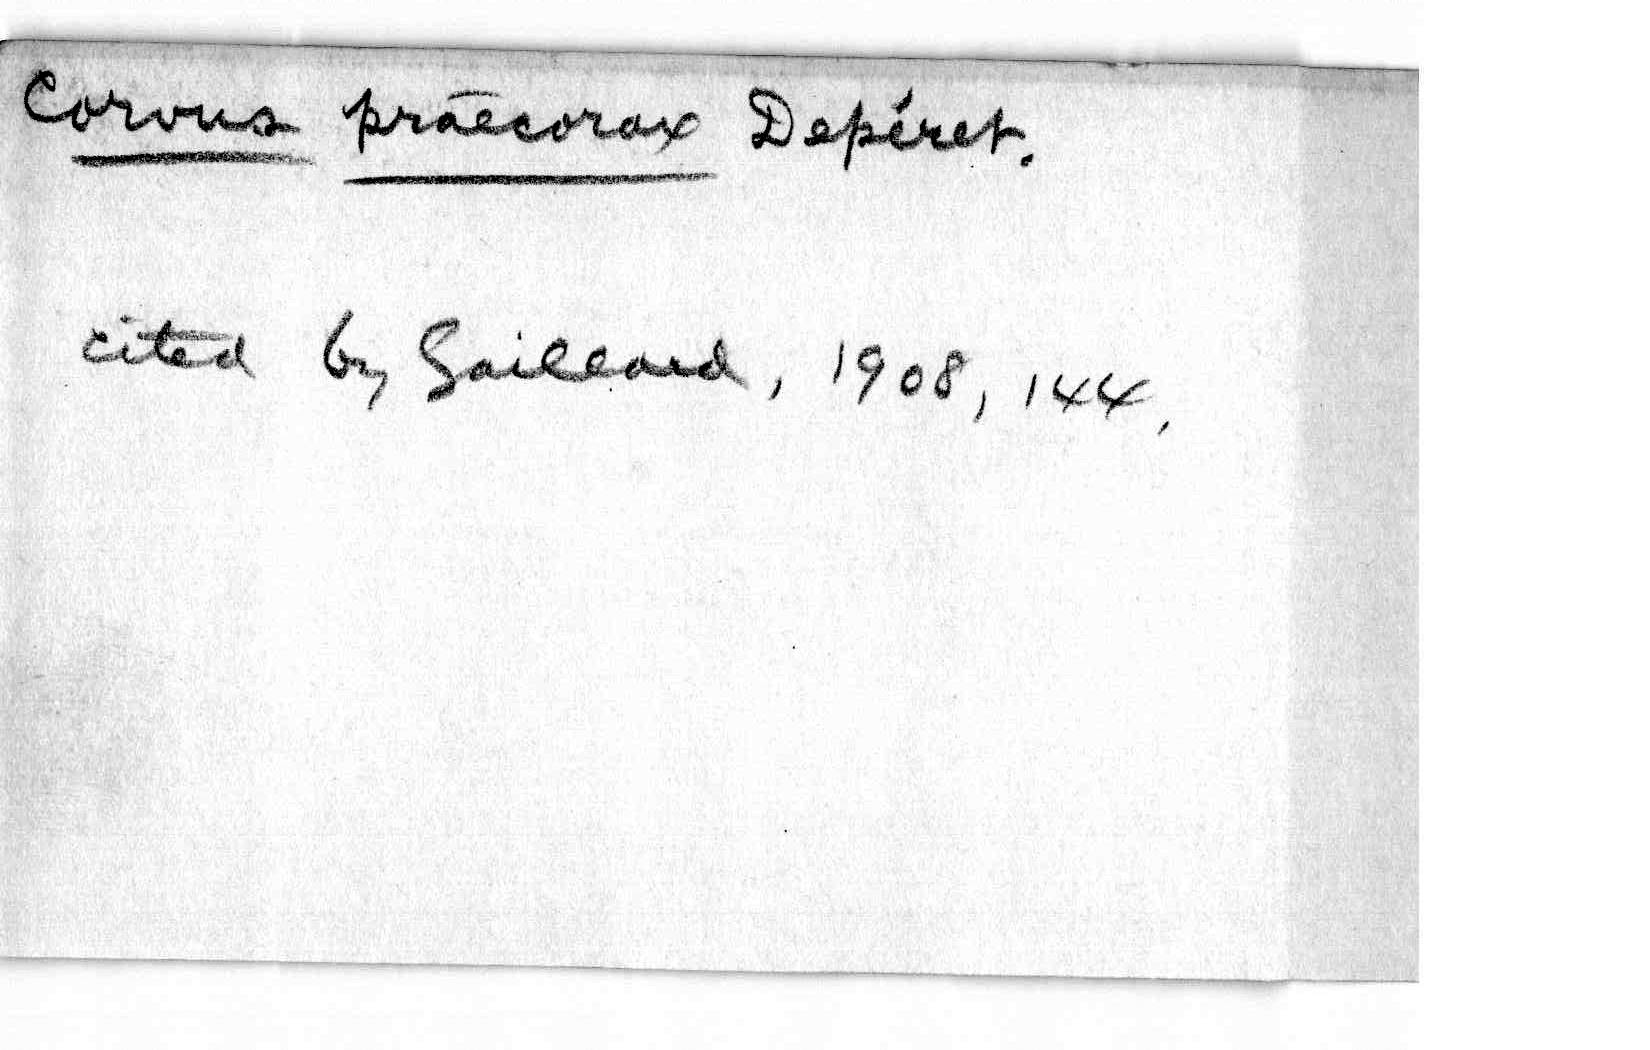 Corvus praecorax Depéret.
cited by Gaillard, 1908, 144,